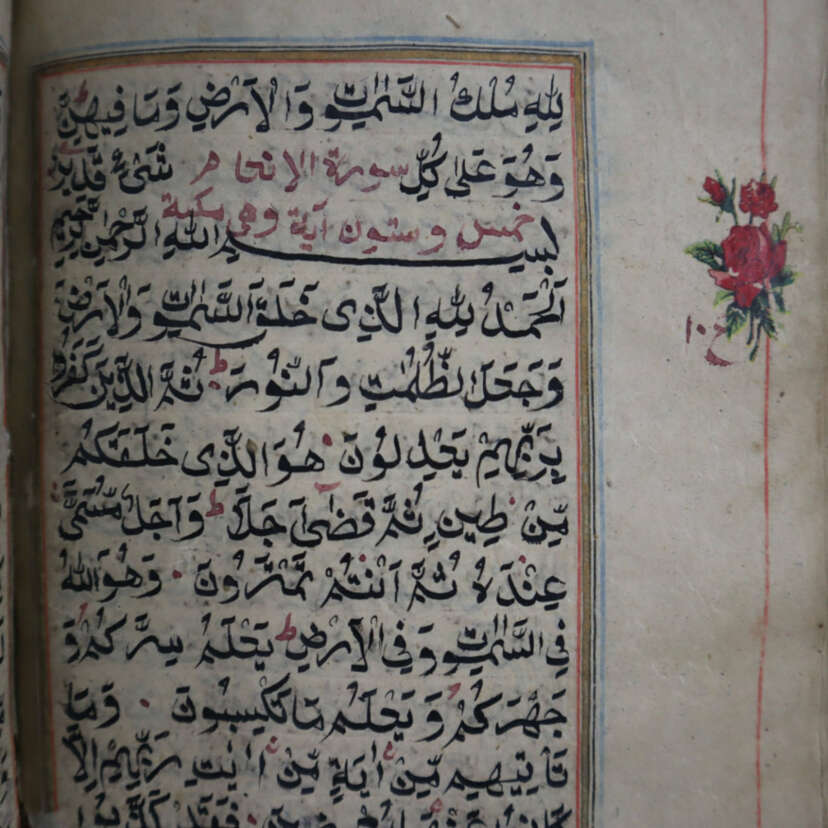 لِلّٰهِ مُلْكُ السَّمٰوٰتِ وَالْاَرْضِ وَمَا فِيهِنَّ
وَهُوَ عَلٰى كُلِّ سورة الانعام شَىْءٍ قَدِيرٌ
خمس وستون آية وهي مكية
بِسْمِ اللّٰهِ الرَّحْمٰنِ الرَّحِيمِ
اَلْحَمْدُ لِلّٰهِ الَّذِى خَلَقَ السَّمٰوٰتِ وَالْاَرْضَ
وَجَعَلَ الظُّلُمٰتِ وَالنُّورَ ط ثُمَّ الَّذِينَ كَفَرُوا
بِرَبِّهِمْ يَعْدِلُونَ هُوَ الَّذِى خَلَقَكُمْ
مِّنْ طِينٍ ثُمَّ قَضٰى اَجَلًا ط وَاَجَلٌ مُّسَمًّى
عِنْدَهُ ثُمَّ اَنْتُمْ تَمْتَرُونَ وَهُوَ اللّٰهُ
فِى السَّمٰوٰتِ وَفِى الْاَرْضِ ط يَعْلَمُ سِرَّكُمْ وَ
جَهْرَكُمْ وَيَعْلَمُ مَا تَكْسِبُونَ وَمَا
تَاْتِيهِمْ مِّنْ اٰيَةٍ مِّنْ اٰيٰتِ رَبِّهِمْ اِلَّا